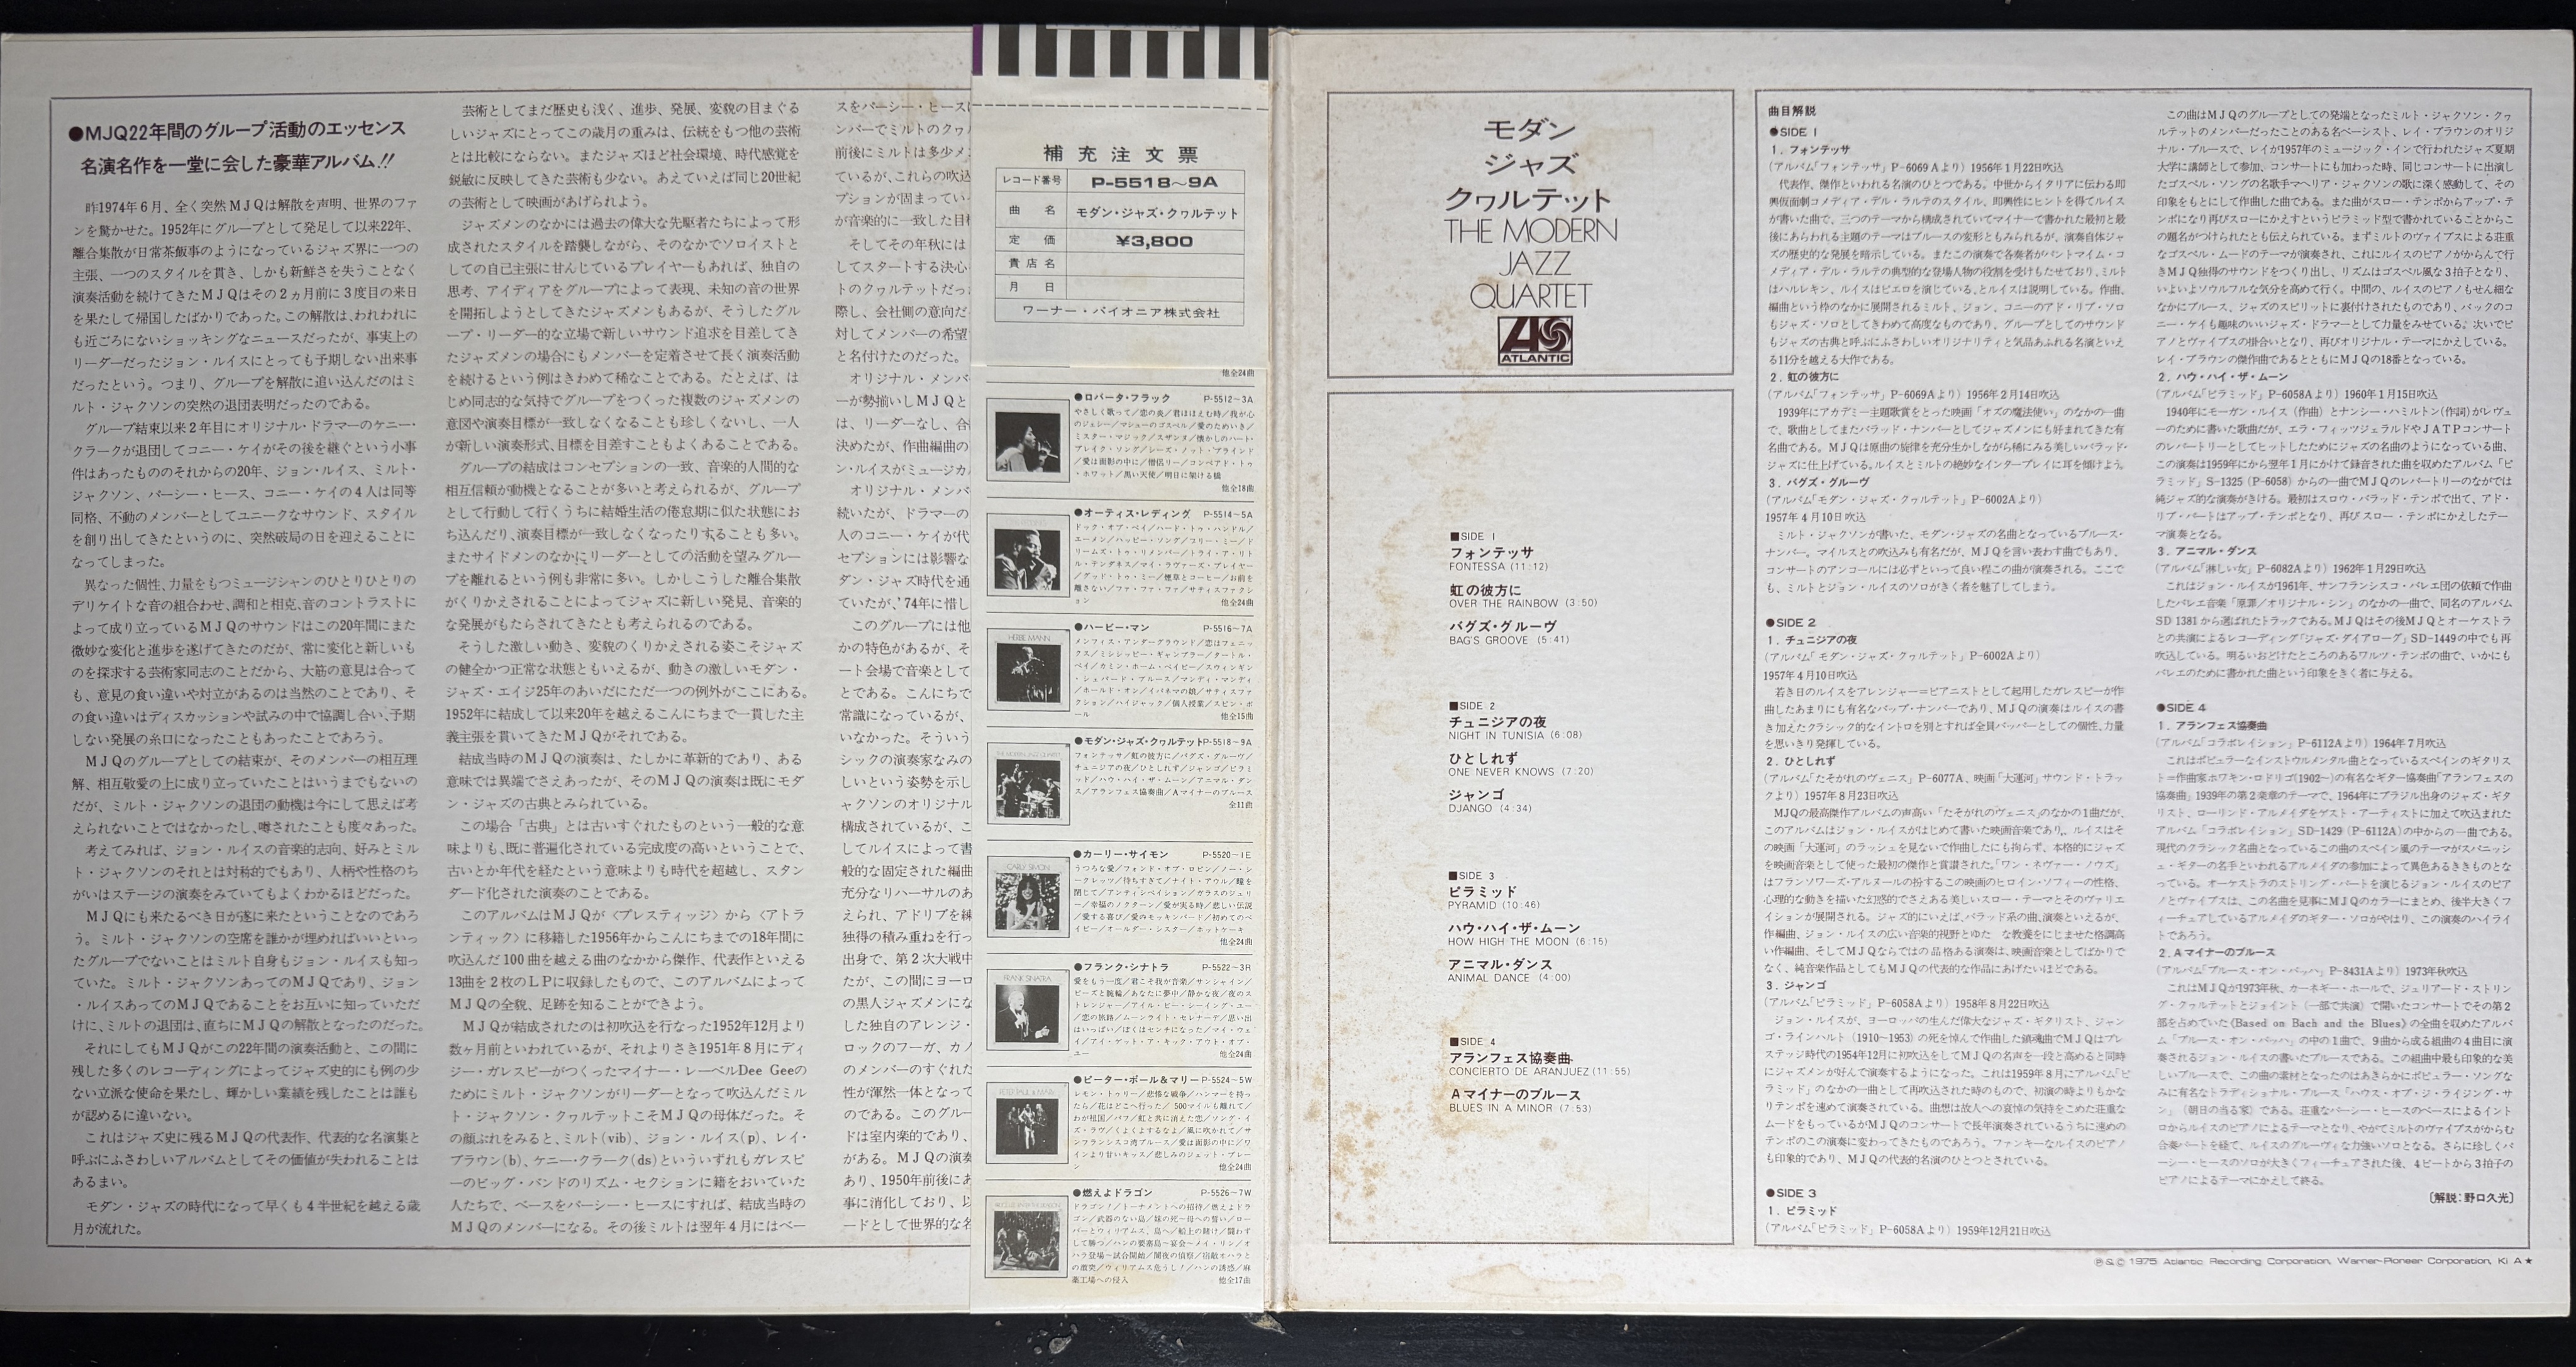 ●MJQ22年間のグループ活動のエッセンス
名演名作を一堂に会した豪華アルバム!!
昨1974年6月、全く突然MJQは解散を声明、世界のファ
ンを驚かせた。1952年にグループとして発足して以来22年、
離合集散が日常茶飯事のようになっているジャズ界に一つの
主張、一つのスタイルを貫き、しかも新鮮さを失うことなく
演奏活動を続けてきたMJQはその2ヵ月前に3度目の来日
を果たして帰国したばかりであった。この解散は、われわれに
も近ごろにないショッキングなニュースだったが、事実上の
リーダーだったジョン・ルイスにとっても予期しない出来事
だったという。つまり、グループを解散に追い込んだのはミ
ルト・ジャクソンの突然の退団表明だったのである。
グループ結束以来2年目にオリジナル・ドラマーのケニー・
クラークが退団してコニー・ケイがその後を継ぐという小事
件はあったもののそれからの20年、ジョン・ルイス、ミルト・
ジャクソン、パーシー・ヒース、コニー・ケイの4人は同等
同格、不動のメンバーとしてユニークなサウンド、スタイル
を創り出してきたというのに、突然破局の日を迎えることに
なってしまった。
異なった個性、力量をもつミュージシャンのひとりひとりの
デリケイトな音の組合わせ、調和と相克、音のコントラストに
よって成り立っているMJQのサウンドはこの20年間にまた
微妙な変化と進歩を遂げてきたのだが、常に変化と新しいも
のを探求する芸術家同志のことだから、大筋の意見は合って
も、意見の食い違いや対立があるのは当然のことであり、そ
の食い違いはディスカッションや試みの中で協調し合い、予期
しない発展の糸口になったこともあったことであろう。
MJQのグループとしての結束が、そのメンバーの相互理
解、相互敬愛の上に成り立っていたことはいうまでもないの
だが、ミルト・ジャクソンの退団の動機は今にして思えば考
えられないことではなかったし、噂されたことも度々あった。
考えてみれば、ジョン・ルイスの音楽的志向、好みとミル
ト・ジャクソンのそれとは対称的でもあり、人柄や性格のち
がいはステージの演奏をみていてもよくわかるほどだった。
MJQにも来たるべき日が遂に来たということなのであろ
う。ミルト・ジャクソンの空席を誰かが埋めればいいといっ
たグループでないことはミルト自身もジョン・ルイスも知っ
ていた。ミルト・ジャクソンあってのMJQであり、ジョン
・ルイスあってのMJQであることをお互いに知っていただ
けに、ミルトの退団は、直ちにMJQの解散となったのだった。
それにしてもMJQがこの22年間の演奏活動と、この間に
残した多くのレコーディングによってジャズ史的にも例の少
ない立派な使命を果たし、輝かしい業績を残したことは誰も
が認めるに違いない。
これはジャズ史に残るMJQの代表作、代表的な名演集と
呼ぶにふさわしいアルバムとしてその価値が失われることは
あるまい。
モダン・ジャズの時代になって早くも4半世紀を越える歳
月が流れた。
芸術としてまだ歴史も浅く、進歩、発展、変貌の目まぐる
しいジャズにとってこの歳月の重みは、伝統をもつ他の芸術
とは比較にならない。またジャズほど社会環境、時代感覚を
鋭敏に反映してきた芸術も少ない。あえていえば同じ20世紀
の芸術として映画があげられよう。
ジャズメンのなかには過去の偉大な先駆者たちによって形
成されたスタイルを踏襲しながら、そのなかでソロイストと
しての自己主張に甘んじているプレイヤーもあれば、独自の
思考、アイディアをグループによって表現、未知の音の世界
を開拓しようとしてきたジャズメンもあるが、そうしたグル
ープ・リーダー的な立場で新しいサウンド追求を目差してき
たジャズメンの場合にもメンバーを定着させて長く演奏活動
を続けるという例はきわめて稀なことである。たとえば、は
じめ同志的な気持でグループをつくった複数のジャズメンの
意図や演奏目標が一致しなくなることも珍しくないし、一人
が新しい演奏形式、目標を目差すこともよくあることである。
グループの結成はコンセプションの一致、音楽的人間的な
相互信頼が動機となることが多いと考えられるが、グループ
として行動して行くうちに結婚生活の倦怠期に似た状態にお
ち込んだり、演奏目標が一致しなくなったりすることも多い。
またサイドメンのなかにリーダーとしての活動を望みグルー
プを離れるという例も非常に多い。しかしこうした離合集散
がくりかえされることによってジャズに新しい発見、音楽的
な発展がもたらされてきたとも考えられるのである。
そうした激しい動き、変貌のくりかえされる姿こそジャズ
の健全かつ正常な状態ともいえるが、動きの激しいモダン・
ジャズ・エイジ25年のあいだにただ一つの例外がここにある。
1952年に結成して以来20年を越えるこんにちまで一貫した主
義主張を貫いてきたMJQがそれである。
結成当時のMJQの演奏は、たしかに革新的であり、ある
意味では異端でさえあったが、そのMJQの演奏は既にモダ
ン・ジャズの古典とみられている。
この場合「古典」とは古いすぐれたものという一般的な意
味よりも、既に普遍化されている完成度の高いということで、
古いとか年代を経たという意味よりも時代を超越し、スタン
ダード化された演奏のことである。
このアルバムはMJQが〈プレスティッジ〉から〈アトラ
ンティック〉に移籍した1956年からこんにちまでの18年間に
吹込んだ100曲を越える曲のなかから傑作、代表作といえる
13曲を2枚のLPに収録したもので、このアルバムによって
MJQの全貌、足跡を知ることができよう。
MJQが結成されたのは初吹込を行なった1952年12月より
数ヶ月前といわれているが、それよりさき1951年8月にディ
ジー・ガレスピーがつくったマイナー・レーベルDee Geeの
ためにミルト・ジャクソンがリーダーとなって吹込んだミル
ト・ジャクソン・クヮルテットこそMJQの母体だった。そ
の顔ぶれをみると、ミルト(vib)、ジョン・ルイス(p)、レイ・
ブラウン(b)、ケニー・クラーク(ds)といういずれもガレスピ
ーのビッグ・バンドのリズム・セクションに籍をおいていた
人たちで、ベースをパーシー・ヒースにすれば、結成当時の
MJQのメンバーになる。その後ミルトは翌年4月にはベー
スをパーシー・ヒースに
ンバーでミルトのクヮル
前後にミルトは多少メン
ているが、これらの吹込
プションが固まってい
が音楽的に一致した目標
そしてその年秋には
してスタートする決心
トのクヮルテットだっ
際し、会社側の意向だ
対してメンバーの希望
と名付けたのだった。
オリジナル・メンバ
ーが勢揃いしMJQと
は、リーダーなし、合
決めたが、作曲編曲の
ン・ルイスがミュージカ
オリジナル・メンバ
続いたが、ドラマーの
人のコニー・ケイが代
セプションには影響な
ダン・ジャズ時代を通
ていたが、'74年に惜し
このグループには他
かの特色があるが、そ
ート会場で音楽として
とである。こんにちで
常識になっているが、
いなかった。そういう
シックの演奏家なみの
しいという姿勢を示し
ャクソンのオリジナル
構成されているが、こ
してルイスによって書
般的な固定された編曲
充分なリハーサルのあ
えられ、アドリブを練
独得の積み重ねを行っ
出身で、第2次大戦中
たが、この間にヨーロ
の黒人ジャズメンにな
した独自のアレンジ・
ロックのフーガ、カノ
のメンバーのすぐれた
性が渾然一体となって
のである。このグルー
ドは室内楽的であり、
がある。MJQの演奏
あり、1950年前後にあ
事に消化しており、以
ードとして世界的な名
補充注文票
レコード番号 P-5518~9A
曲名 モダン・ジャズ・クヮルテット
定価 ¥3,800
貴店名
月日
ワーナー・パイオニア株式会社
他全24曲
●ロバータ・フラック P-5512~3A
やさしく歌って/恋の炎/君はほほえむ時/我が心
のジェシー/マシューのゴスペル/愛のためいき/
ミスター・マジック/スザンヌ/懐かしのハート・
ブレイク・ソング/シーズ・ノット・ブラインド
/愛は面影の中に/僧侶リー/コンペアド・トゥ
・ホワット/黒い天使/明日に架ける橋
他全18曲
●オーティス・レディング P-5514~5A
ドック・オブ・ベイ/ハード・トゥ・ハンドル/
エーメン/ハッピー・ソング/フリー・ミー/ド
リームズ・トゥ・リメンバー/トライ・ア・リト
ル・テンダネス/マイ・ラヴァーズ・プレイヤー
/グッド・トゥ・ミー/煙草とコーヒー/お前を
離さない/ファ・ファ・ファ/サティスファクシ
ョン 他全24曲
●ハービー・マン P-5516~7A
HERBIE MANN
メンフィス・アンダーグラウンド/恋はフェニッ
クス/ミシシッピー・ギャンブラー/タートル・
ベイ/カミン・ホーム・ベイビー/スウィンギン
・シェパード・ブルース/マンディ・マンディ
/ホールド・オン/イパネマの娘/サティスファ
クション/ハイジャック/個人授業/スピン・ボ
ール 他全15曲
●モダン・ジャズ・クヮルテット P-5518~9A
THE MODERN JAZZ QUARTET
フォンテッサ/虹の彼方に/バグズ・グルーヴ/
チュニジアの夜/ひとしれず/ジャンゴ/ピラミ
ッド/ハウ・ハイ・ザ・ムーン/アニマル・ダン
ス/アランフェス協奏曲/Aマイナーのブルース
全11曲
●カーリー・サイモン P-5520~1E
CARLY SIMON
うつろな愛/フォンド・オブ・ロビン/ノー・シ
ークレッツ/待ちすぎて/ナイト・アウル/瞳を
閉じて/アンティシペイション/ガラスのジュリ
ー/幸福のノクターン/愛が実る時/悲しい伝説
/愛する喜び/愛のモッキンバード/初めてのベ
イビー/オールダー・シスター/ホットケーキ
他全24曲
●フランク・シナトラ P-5522~3R
FRANK SINATRA
愛をもう一度/君こそ我が音楽/サンシャイン/
ビーズと腕輪/あなたに夢中/静かな夜/夜のス
トレンジャー/アイル・ビー・シーイング・ユー
/恋の旅路/ムーンライト・セレナーデ/思い出
はいっぱい/ぼくはセンチになった/マイ・ウェ
イ/アイ・ゲット・ア・キック・アウト・オブ・
ユー 他全24曲
●ピーター・ポール&マリー P-5524~5W
PETER, PAUL & MARY
レモン・トゥリー/悲惨な戦争/ハンマーを持っ
たら/花はどこへ行った/500マイルも離れて/
わが祖国/パフ/虹と共に消えた恋/ソング・イ
ズ・ラヴ/くよくよするなよ/風に吹かれて/サ
ンフランシスコ湾ブルース/愛は面影の中に/ワ
インより甘いキッス/悲しみのジェット・プレー
ン 他全24曲
●燃えよドラゴン P-5526~7W
ドラゴン!/トーナメントへの招待/燃えよドラ
ゴン/武器のない島/妹の死―母への誓い/ロー
パーとウィリアムス、島へ/船上の賭け/闘わず
して勝つ/ハンの要塞島―宴会―メイ・リン/オ
ハラ登場―試合開始/闇夜の偵察/宿敵オハラと
の激突/ウィリアムス危うし!/ハンの誘惑/麻
薬工場への侵入 他全17曲
モダン
ジャズ
クヮルテット
THE MODERN
JAZZ
QUARTET
ATLANTIC
■SIDE 1
フォンテッサ
FONTESSA (11:12)
虹の彼方に
OVER THE RAINBOW (3:50)
バグズ・グルーヴ
BAG'S GROOVE (5:41)
■SIDE 2
チュニジアの夜
NIGHT IN TUNISIA (6:08)
ひとしれず
ONE NEVER KNOWS (7:20)
ジャンゴ
DJANGO (4:34)
■SIDE 3
ピラミッド
PYRAMID (10:46)
ハウ・ハイ・ザ・ムーン
HOW HIGH THE MOON (6:15)
アニマル・ダンス
ANIMAL DANCE (4:00)
■SIDE 4
アランフェス協奏曲
CONCIERTO DE ARANJUEZ (11:55)
Aマイナーのブルース
BLUES IN A MINOR (7:53)
曲目解説
●SIDE 1
1. フォンテッサ
(アルバム「フォンテッサ」P-6069Aより) 1956年1月22日吹込
代表作、傑作といわれる名演のひとつである。中世からイタリアに伝わる即
興仮面劇コメディア・デル・ラルテのスタイル、即興性にヒントを得てルイス
が書いた曲で、三つのテーマから構成されていてマイナーで書かれた最初と最
後にあらわれる主題のテーマはブルースの変形ともみられるが、演奏自体ジャ
ズの歴史的な発展を暗示している。またこの演奏で各奏者がパントマイム・コ
メディア・デル・ラルテの典型的な登場人物の役割を受けもたせており、ミルト
はハルレキン、ルイスはピエロを演じている、とルイスは説明している。作曲、
編曲という枠のなかに展開されるミルト、ジョン、コニーのアド・リブ・ソロ
もジャズ・ソロとしてきわめて高度なものであり、グループとしてのサウンド
もジャズの古典と呼ぶにふさわしいオリジナリティと気品あふれる名演といえ
る11分を越える大作である。
2. 虹の彼方に
(アルバム「フォンテッサ」P-6069Aより) 1956年2月14日吹込
1939年にアカデミー主題歌賞をとった映画「オズの魔法使い」のなかの一曲
で、歌曲としてまたバラッド・ナンバーとしてジャズメンにも好まれてきた有
名曲である。MJQは原曲の旋律を充分生かしながら稀にみる美しいバラッド・
ジャズに仕上げている。ルイスとミルトの絶妙なインタープレイに耳を傾けよう。
3. バグズ・グルーヴ
(アルバム「モダン・ジャズ・クヮルテット」P-6002Aより)
1957年4月10日吹込
ミルト・ジャクソンが書いた、モダン・ジャズの名曲となっているブルース・
ナンバー。マイルスとの吹込みも有名だが、MJQを言い表わす曲でもあり、
コンサートのアンコールには必ずといって良い程この曲が演奏される。ここで
も、ミルトとジョン・ルイスのソロがきく者を魅了してしまう。
●SIDE 2
1. チュニジアの夜
(アルバム「モダン・ジャズ・クヮルテット」P-6002Aより)
1957年4月10日吹込
若き日のルイスをアレンジャー=ピアニストとして起用したガレスピーが作
曲したあまりにも有名なバップ・ナンバーであり、MJQの演奏はルイスの書
き加えたクラシック的なイントロを別とすれば全員バッパーとしての個性、力量
を思いきり発揮している。
2. ひとしれず
(アルバム「たそがれのヴェニス」P-6077A、映画「大運河」サウンド・トラッ
クより) 1957年8月23日吹込
MJQの最高傑作アルバムの声高い「たそがれのヴェニス」のなかの1曲だが、
このアルバムはジョン・ルイスがはじめて書いた映画音楽であり、ルイスはそ
の映画「大運河」のラッシュを見ないで作曲したにも拘らず、本格的にジャズ
を映画音楽として使った最初の傑作と賞讃された。「ワン・ネヴァー・ノウズ」
はフランソワーズ・アルヌールの扮するこの映画のヒロイン・ソフィーの性格、
心理的な動きを描いた幻惑的でさえある美しいスロー・テーマとそのヴァリエ
イションが展開される。ジャズ的にいえば、バラッド系の曲、演奏といえるが、
作編曲、ジョン・ルイスの広い音楽的視野とゆた な教養をにじませた格調高
い作編曲、そしてMJQならではの品格ある演奏は、映画音楽としてばかりで
なく、純音楽作品としてもMJQの代表的な作品にあげたいほどである。
3. ジャンゴ
(アルバム「ピラミッド」P-6058Aより) 1958年8月22日吹込
ジョン・ルイスが、ヨーロッパの生んだ偉大なジャズ・ギタリスト、ジャン
ゴ・ラインハルト (1910~1953) の死を悼んで作曲した鎮魂曲でMJQはプレ
ステッジ時代の1954年12月に初吹込をしてMJQの名声を一段と高めると同時
にジャズメンが好んで演奏するようになった。これは1959年8月にアルバム「ピ
ラミッド」のなかの一曲として再吹込された時のもので、初演の時よりもかな
りテンポを速めて演奏されている。曲想は故人への哀悼の気持をこめた荘重な
ムードをもっているがMJQのコンサートで長年演奏されているうちに速めの
テンポのこの演奏に変わってきたものであろう。ファンキーなルイスのピアノ
も印象的であり、MJQの代表的名演のひとつとされている。
●SIDE 3
1. ピラミッド
(アルバム「ピラミッド」P-6058Aより) 1959年12月21日吹込
この曲はMJQのグループとしての発端となったミルト・ジャクソン・クヮ
ルテットのメンバーだったことのある名ベーシスト、レイ・ブラウンのオリジ
ナル・ブルースで、レイが1957年のミュージック・インで行われたジャズ夏期
大学に講師として参加、コンサートにも加わった時、同じコンサートに出演し
たゴスペル・ソングの名歌手マヘリア・ジャクソンの歌に深く感動して、その
印象をもとにして作曲した曲である。また曲がスロー・テンポからアップ・テ
ンポになり再びスローにかえすというピラミッド型で書かれていることからこ
の題名がつけられたとも伝えられている。まずミルトのヴァイブスによる荘重
なゴスペル・ムードのテーマが演奏され、これにルイスのピアノがからんで行
きMJQ独得のサウンドをつくり出し、リズムはゴスペル風な3拍子となり、
いよいよソウルフルな気分を高めて行く。中間の、ルイスのピアノもせん細な
なかにブルース、ジャズのスピリットに裏付けされたものであり、バックのコ
ニー・ケイも趣味のいいジャズ・ドラマーとして力量をみせている。次いでピ
アノとヴァイブスの掛合いとなり、再びオリジナル・テーマにかえしている。
レイ・ブラウンの傑作曲であるとともにMJQの18番となっている。
2. ハウ・ハイ・ザ・ムーン
(アルバム「ピラミッド」P-6058Aより) 1960年1月15日吹込
1940年にモーガン・ルイス (作曲) とナンシー・ハミルトン(作詞)がレヴュ
ーのために書いた歌曲だが、エラ・フィッツジェラルドやJATPコンサート
のレパートリーとしてヒットしたためにジャズの名曲のようになっている曲、
この演奏は1959年にから翌年1月にかけて録音された曲を収めたアルバム「ピ
ラミッド」S-1325 (P-6058) からの一曲でMJQのレパートリーのなかでは
純ジャズ的な演奏がきける。最初はスロウ・バラッド・テンポで出て、アド・
リブ・パートはアップ・テンポとなり、再びスロー・テンポにかえしたテー
マ演奏となる。
3. アニマル・ダンス
(アルバム「淋しい女」P-6082Aより) 1962年1月29日吹込
これはジョン・ルイスが1961年、サンフランシスコ・バレエ団の依頼で作曲
したバレエ音楽「原罪/オリジナル・シン」のなかの一曲で、同名のアルバム
SD 1381 から選ばれたトラックである。MJQはその後MJQとオーケストラ
との共演によるレコーディング「ジャズ・ダイアローグ」SD-1449の中でも再
吹込している。明るいおどけたところのあるワルツ・テンポの曲で、いかにも
バレエのために書かれた曲という印象をきく者に与える。
●SIDE 4
1. アランフェス協奏曲
(アルバム「コラボレイション」P-6112Aより) 1964年7月吹込
これはポピュラーなインストゥルメンタル曲となっているスペインのギタリス
ト=作曲家ホワキン・ロドリゴ(1902~)の有名なギター協奏曲「アランフェスの
協奏曲」1939年の第2楽章のテーマで、1964年にブラジル出身のジャズ・ギタ
リスト、ローリンド・アルメイダをゲスト・アーティストに加えて吹込まれた
アルバム「コラボレイション」SD-1429 (P-6112A)の中からの一曲である。
現代のクラシック名曲となっているこの曲のスペイン風のテーマがスパニッシ
ュ・ギターの名手といわれるアルメイダの参加によって異色あるききものとな
っている。オーケストラのストリング・パートを演じるジョン・ルイスのピア
ノとヴァイブスは、この名曲を見事にMJQのカラーにまとめ、後半大きくフ
ィーチュアしているアルメイダのギター・ソロがやはり、この演奏のハイライ
トであろう。
2. Aマイナーのブルース
(アルバム「ブルース・オン・バッハ」P-8431Aより) 1973年秋吹込
これはMJQが1973年秋、カーネギー・ホールで、ジュリアード・ストリン
グ・クヮルテットとジョイント (一部で共演) で開いたコンサートでその第2
部を占めていた《Based on Bach and the Blues》の全曲を収めたアルバ
ム「ブルース・オン・バッハ」の中の1曲で、9曲から成る組曲の4曲目に演
奏されるジョン・ルイスの書いたブルースである。この組曲中最も印象的な美
しいブルースで、この曲の素材となったのはあきらかにポピュラー・ソングな
みに有名なトラディショナル・ブルース「ハウス・オブ・ジ・ライジング・サ
ン」(朝日の当る家) である。荘重なパーシー・ヒースのベースによるイント
ロからルイスのピアノによるテーマとなり、やがてミルトのヴァイブスがからむ
合奏パートを経て、ルイスのグルーヴィな力強いソロとなる。さらに珍しくパ
ーシー・ヒースのソロが大きくフィーチュアされた後、4ビートから3拍子の
ピアノによるテーマにかえして終る。
〔解説:野口久光〕
℗&© 1975 Atlantic Recording Corporation, Warner-Pioneer Corporation, Ki A★